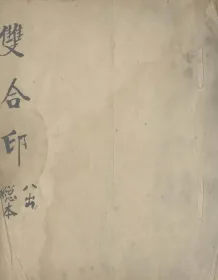 雙合印
八出
總本